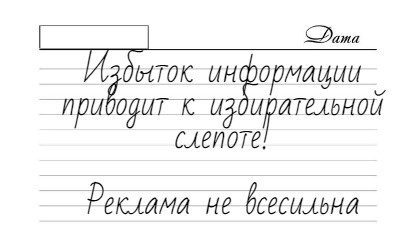 Дата
Избыток информации
приводит к избирательной
слепоте!
Реклама не всесильна